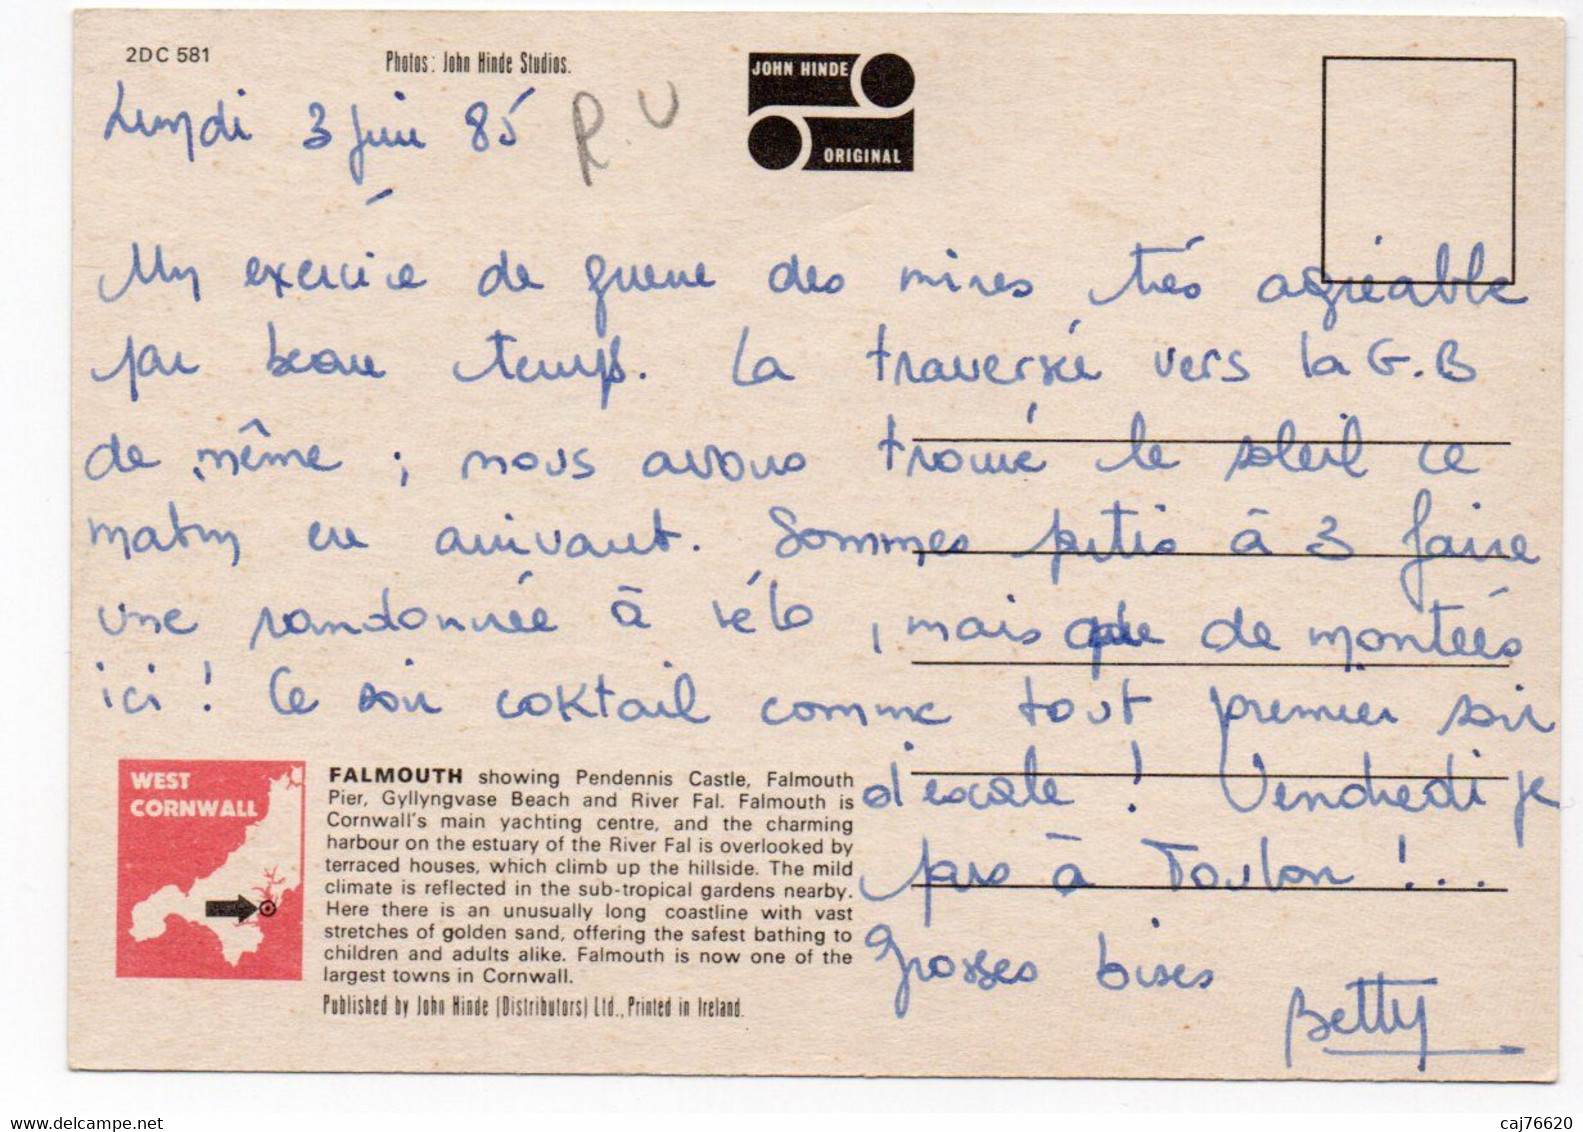 2DC 581
Photos: John Hinde Studios.
JOHN HINDE
ORIGINAL
Lundi 3 Juin 85
R.U
Un exercice de guerre des mines très agréable
par beau temps. La traversée vers la G.B
de même ; nous avons trouvé le soleil ce
matin en arrivant. Sommes partis à 3 faire
une randonnée à vélo, mais que de montées
ici ! Ce soir coktail comme tout premier soir
d'escale ! Vendredi je
pars à Toulon !...
Grosses bises
Betty
WEST
CORNWALL
FALMOUTH showing Pendennis Castle, Falmouth
Pier, Gyllyngvase Beach and River Fal. Falmouth is
Cornwall's main yachting centre, and the charming
harbour on the estuary of the River Fal is overlooked by
terraced houses, which climb up the hillside. The mild
climate is reflected in the sub-tropical gardens nearby.
Here there is an unusually long coastline with vast
stretches of golden sand, offering the safest bathing to
children and adults alike. Falmouth is now one of the
largest towns in Cornwall.
Published by John Hinde (Distributors) Ltd., Printed in Ireland.
www.delcampe.net
caj76620